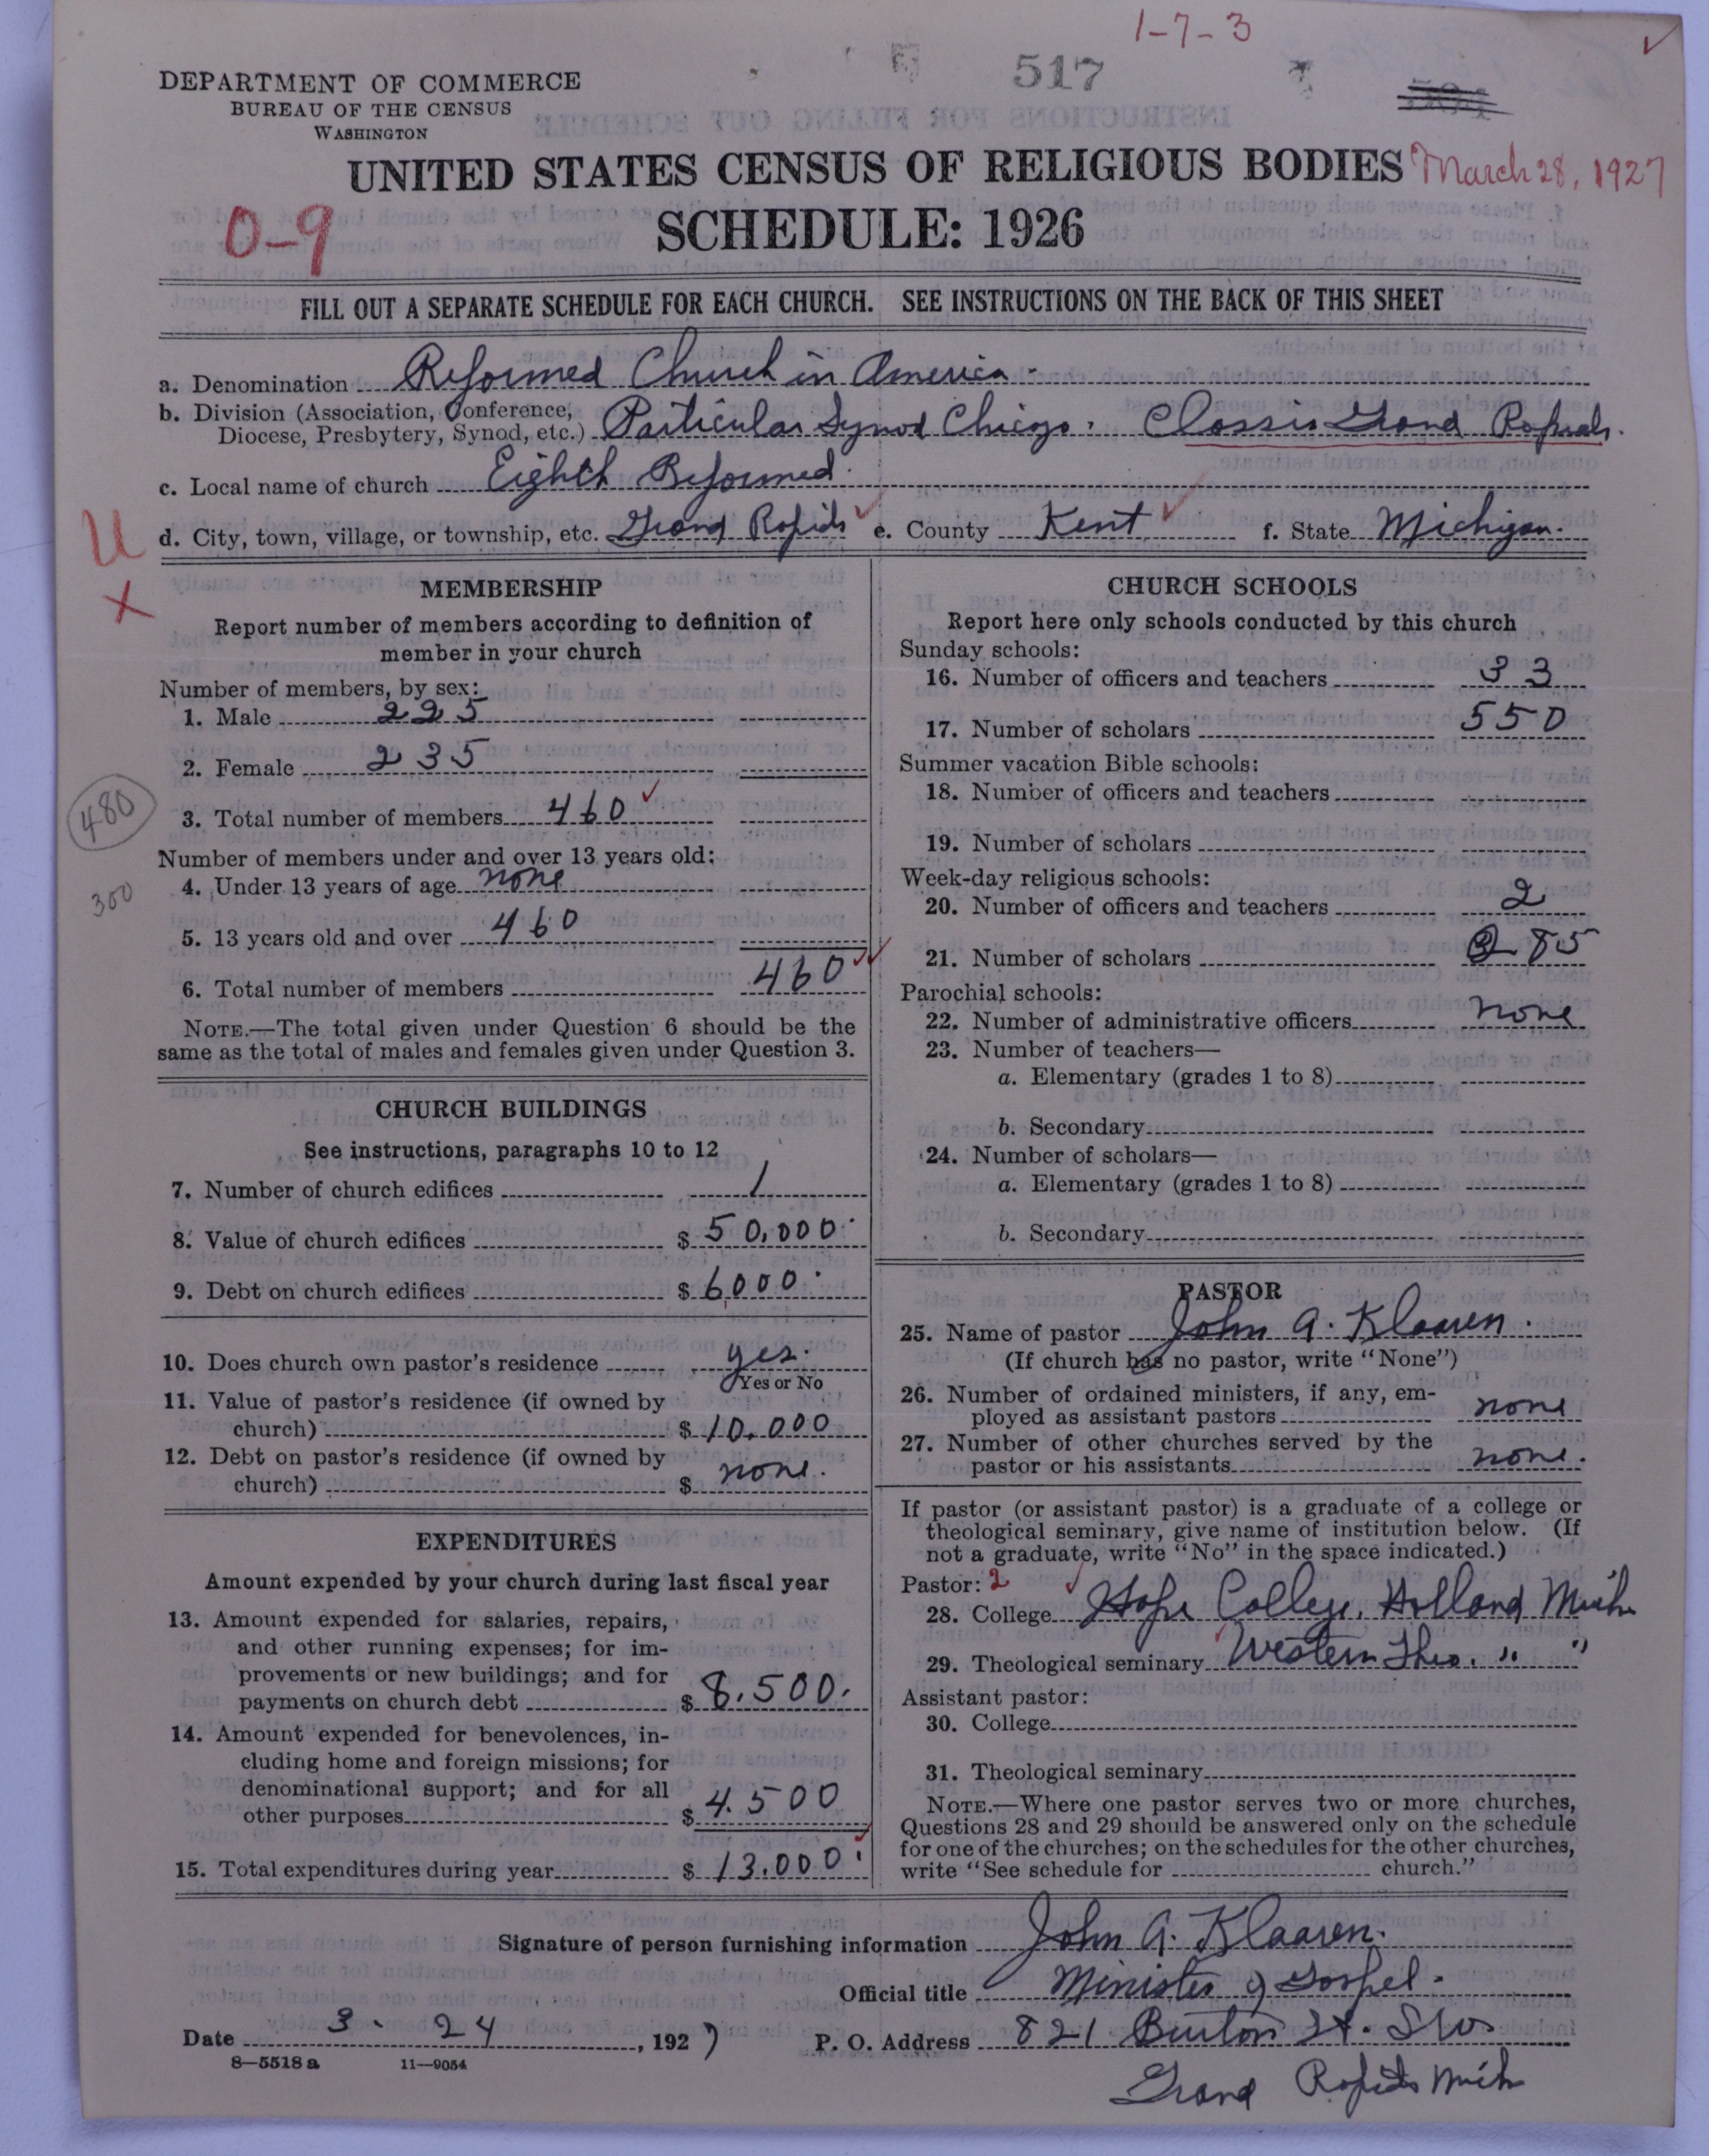 1-7-3
517
DEPARTMENT OF COMMERCE
BUREAU OF THE CENSUS
WASHINGTON
UNITED STATES CENSUS OF RELIGIOUS BODIES March 28, 1927
0-9
SCHEDULE: 1926
FILL OUT A SEPARATE SCHEDULE FOR EACH CHURCH. SEE INSTRUCTIONS ON THE BACK OF THIS SHEET
a. Denomination Reformed Church in America.
b. Division (Association, Conference,
Diocese, Presbytery, Synod, etc.) Particular Synod Chicago. Classis Grand Rapids.
c. Local name of church Eighth Reformed.
d. City, town, village, or township, etc. Grand Rapids e. County Kent f. State Michigan.
U
X
MEMBERSHIP
Report number of members according to definition of
member in your church
Number of members, by sex:
1. Male 225
2. Female 235
480
3. Total number of members 460
Number of members under and over 13 years old:
300
4. Under 13 years of age none
5. 13 years old and over 460
6. Total number of members 460
NOTE.—The total given under Question 6 should be the
same as the total of males and females given under Question 3.
CHURCH BUILDINGS
See instructions, paragraphs 10 to 12
7. Number of church edifices 1
8. Value of church edifices $ 50,000.
9. Debt on church edifices $ 6000.
10. Does church own pastor's residence yes.
Yes or No
11. Value of pastor's residence (if owned by
church) $ 10.000
12. Debt on pastor's residence (if owned by
church) $ none.
EXPENDITURES
Amount expended by your church during last fiscal year
13. Amount expended for salaries, repairs,
and other running expenses; for im-
provements or new buildings; and for
payments on church debt $ 8.500.
14. Amount expended for benevolences, in-
cluding home and foreign missions; for
denominational support; and for all
other purposes $ 4.500
15. Total expenditures during year $ 13.000.
CHURCH SCHOOLS
Report here only schools conducted by this church
Sunday schools:
16. Number of officers and teachers 33
17. Number of scholars 550
Summer vacation Bible schools:
18. Number of officers and teachers
19. Number of scholars
Week-day religious schools:
20. Number of officers and teachers 2
21. Number of scholars 285
Parochial schools:
22. Number of administrative officers none
23. Number of teachers—
a. Elementary (grades 1 to 8)
b. Secondary
24. Number of scholars—
a. Elementary (grades 1 to 8)
b. Secondary
PASTOR
25. Name of pastor John A. Klaaren.
(If church has no pastor, write "None")
26. Number of ordained ministers, if any, em-
ployed as assistant pastors none
27. Number of other churches served by the
pastor or his assistants none.
If pastor (or assistant pastor) is a graduate of a college or
theological seminary, give name of institution below. (If
not a graduate, write "No" in the space indicated.)
Pastor: 2
28. College Hope College, Holland Mich
29. Theological seminary Western Theo. " "
Assistant pastor:
30. College
31. Theological seminary
NOTE.—Where one pastor serves two or more churches,
Questions 28 and 29 should be answered only on the schedule
for one of the churches; on the schedules for the other churches,
write "See schedule for church."
Signature of person furnishing information John A. Klaaren.
Official title Minister of Gospel.
Date 3. 24, 1927 P. O. Address 821 Burton St. S W
8—5518 a 11—9054
Grand Rapids Mich